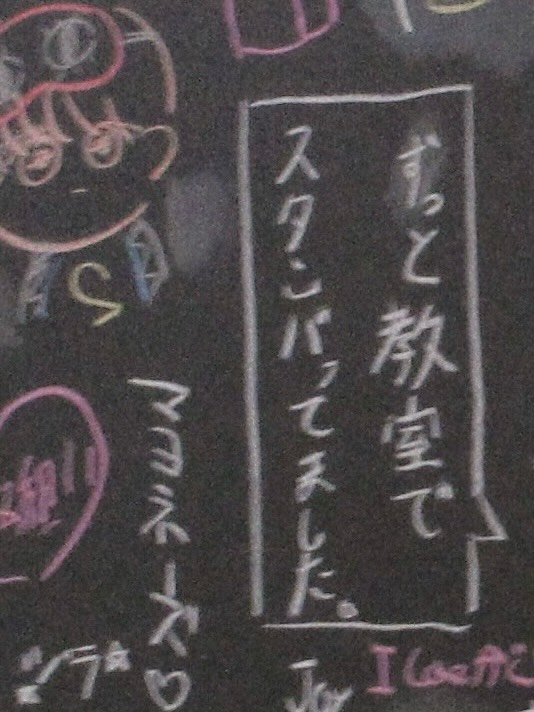 ずっと教室で
スタンバってました。
マヨネーズ♡